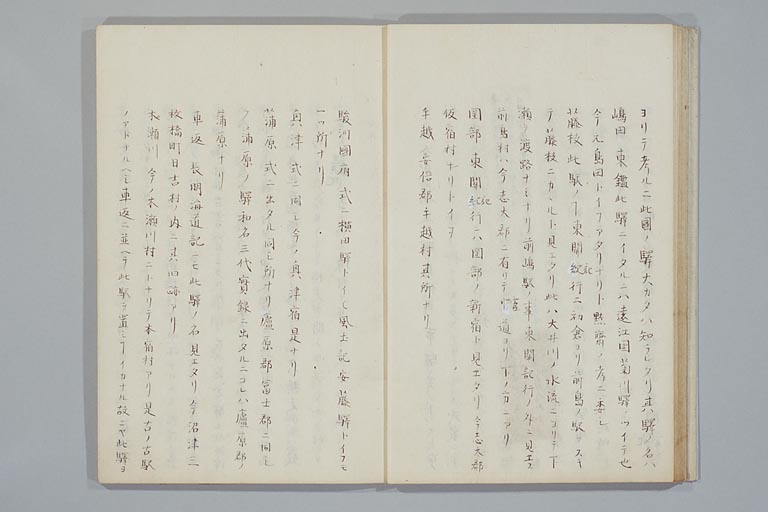 ヨリテ考ルニ此國ノ驛大カタハ知ラレタリ其驛ノ名ハ
嶋田 東鑑此驛ニイタルニハ遠江国菊川驛 ツイテ也
今元島田トイフアタリナリト黙齋ノ考ニ委し
藤枝 此驛ノ下東関紀行ニ初倉ヨリ前島ノ駅ヲスキ
テ藤枝ニカヽルト見エタリ此ハ大井川ノ水流ニヨリテ下
瀬ノ渡路ナレナリ前嶋駅ノ事東関記行ノ外ニ見エス
前島村ハ今志太郡ニ有リテ 道ヨリ下ノカタニアリ
岡部 東関紀行ニハ岡部ノ新宿ト見エタリ今志太郡
仮宿村ナリトイヲ
手越 安倍郡手越村其所ナリ
駿河國府 式ニ横田驛トイヒ風土記安藤驛トイフモ
一ツ所ナリ
奥津 式ニ同し今ノ奥津宿是ナリ
蒲原 式ニ出タル同し所ナリ廬原郡富士郡ニ同し
蒲原ノ驛和名三代實録ニ出タルニコレハ廬原郡ノ
蒲原ナリ
車返 長明海道記ニモ此驛ノ名見エタリ今沼津三
枚橋町日吉村ノ内ニ其旧跡アリ
木瀬川 今ノ木瀬川村ニトナリテ本宿村アリ是古ノ古駅
ノアトナルヘし車返ニ並ヘテ此駅ヲ置シイカナル故ニヤ此驛ヨ